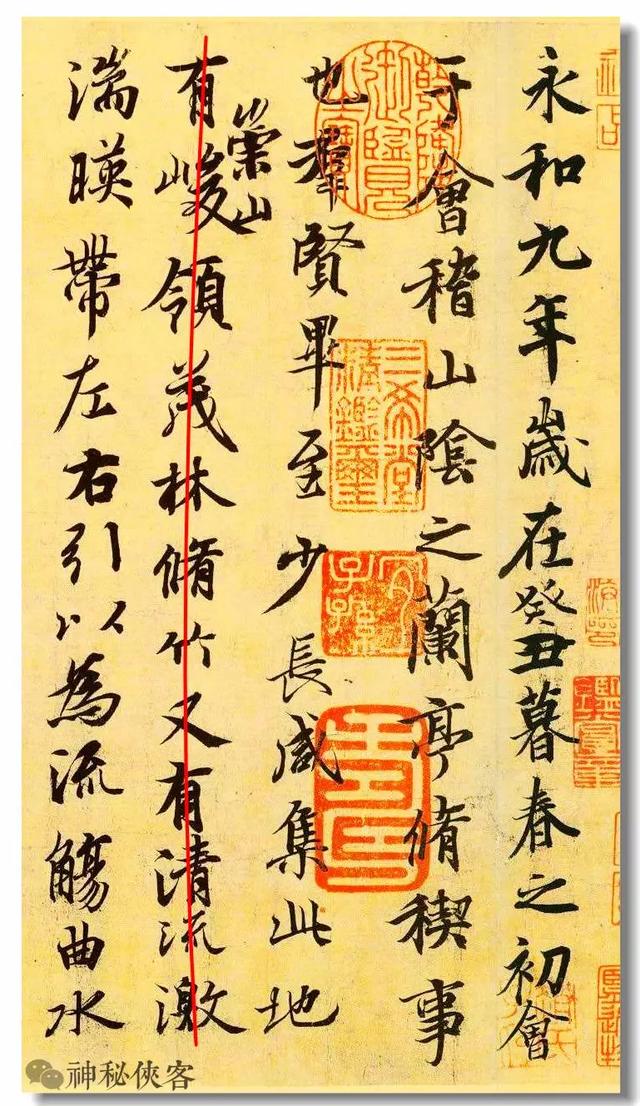 永和九年歲在癸丑暮春之初會
于會稽山陰之蘭亭脩稧事
也羣賢畢至少長咸集此地
有崇山峻領茂林脩竹又有清流激
湍暎帶左右引以為流觴曲水
三希堂
精鑑璽
宜
子孫
神秘俠客